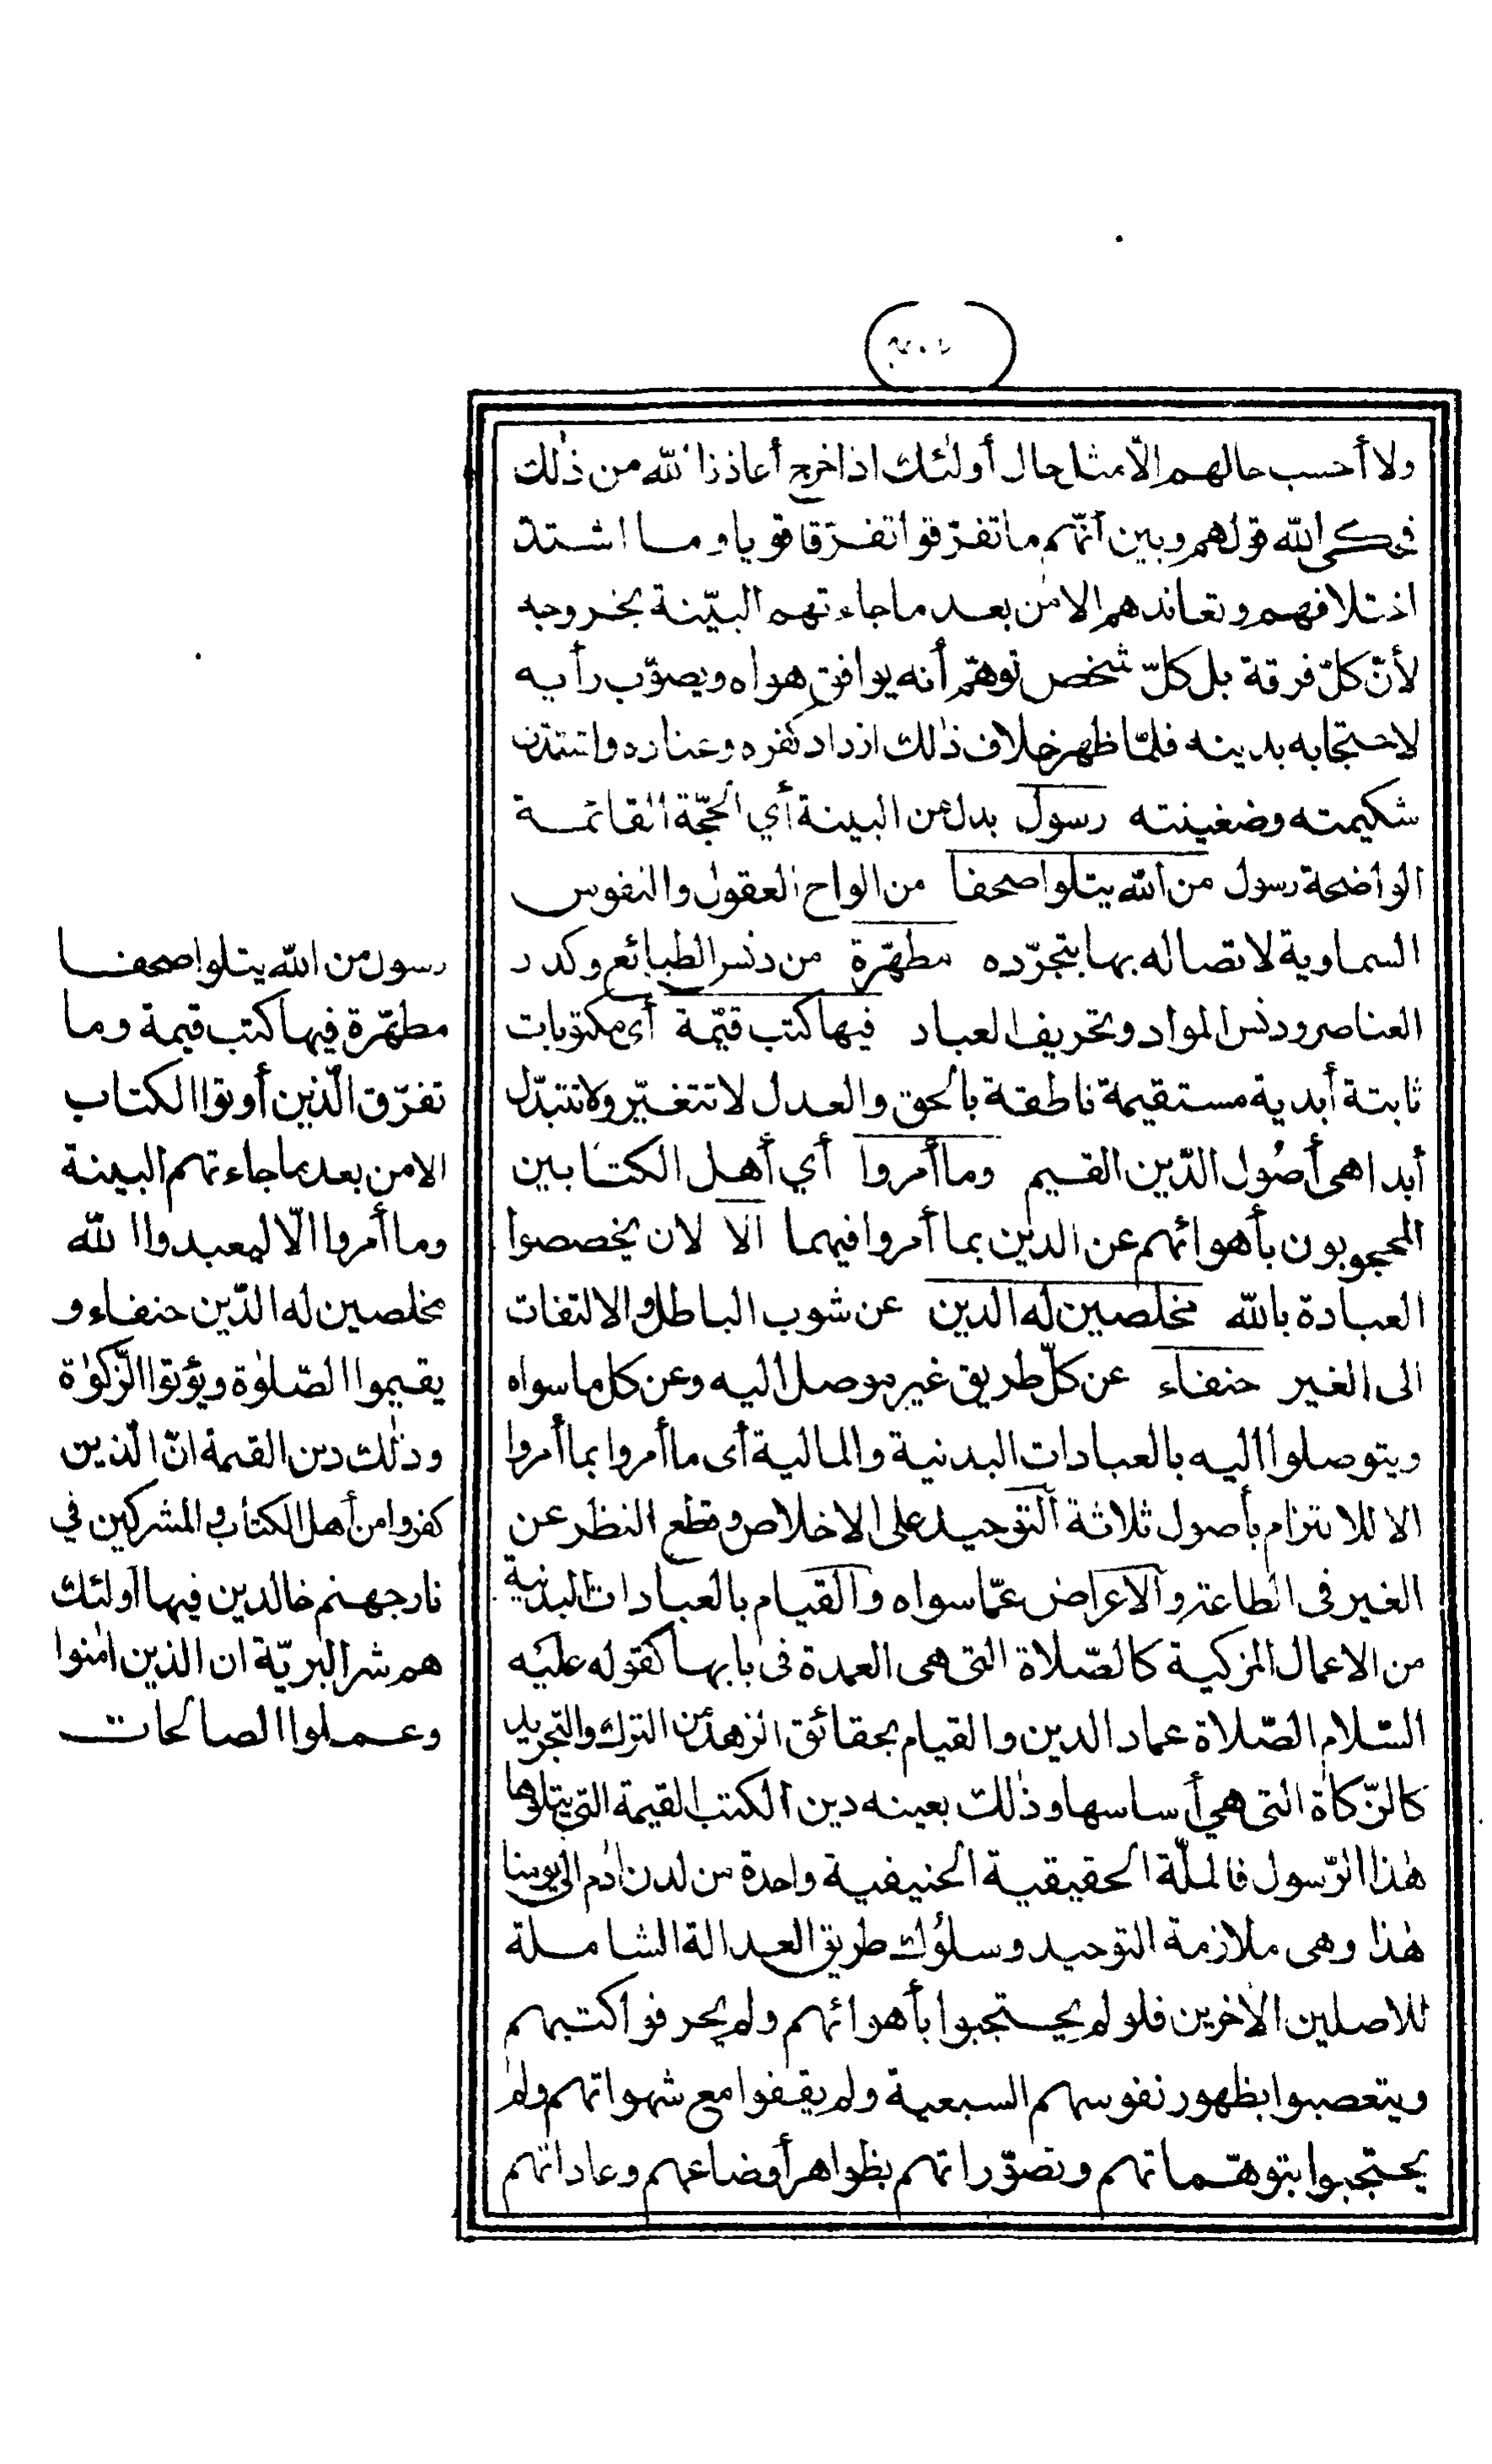 ولا أحسب حالهم الّا مثل حال أولٰئك اذا خرج أعاذنا الله من ذٰلك
فحكى الله قولهم وبين أنّهم ما تفرّقوا تفرّقا قويا وما اشتدّ
اختلافهم وتعاندهم الا من بعد ما جاءتهم البيّنة بخروجه
لأنّ كلّ فرقة بل كلّ شخص توهّم أنه يوافق هواه ويصوّب رأيه
لاحتجابه بدينه فلمّا ظهر خلاف ذٰلك ازداد كفره وعناده واشتدّت
شكيمته وضغينته رسول بدل من البينة أي الحجّة القائمة
الواضحة رسول من الله يتلوا صحفا من الواح العقول والنفوس
السماوية لاتصاله بها بتجرّده مطهّرة من دنس الطبائع وكدر
العناصر ودنس المواد وتحريف العباد فيها كتب قيّمة أى مكتوبات
ثابتة أبدية مستقيمة ناطقة بالحق والعدل لا تتغيّر ولا تتبدّل
أبدا هى أصُول الدّين القيم وما أمروا أي أهل الكتابين
المحجوبون بأهوائهم عن الدين بما أمروا فيهما الا لان يخصصوا
العبادة بالله مخلصين له الدين عن شوب الباطل والالتفات
الى الغير حنفاء عن كلّ طريق غير موصل اليه وعن كل ما سواه
ويتوصلوا اليه بالعبادات البدنية والمالية أى ما أمروا بما أمروا
الا للالتزام بأصول ثلاثة التوحيد على الاخلاص وقطع النظر عن
الغير فى الطاعة والاعراض عمّا سواه والقيام بالعبادات البدنية
من الاعمال المزكية كالصّلاة التى هى العمدة فى بابها كقوله عليه
السّلام الصّلاة عماد الدين والقيام بحقائق الزهد من الترك والتجريد
كالزّكاة التى هي أساسها وذٰلك بعينه دين الكتب القيمة التي يتلوها
هٰذا الرّسول فالملّة الحقيقية الحنيفية واحدة من لدن اٰدم الى يومنا
هٰذا وهى ملازمة التوحيد وسلوك طريق العدالة الشاملة
للاصلين الاٰخرين فلو لم يحتجبوا بأهوائهم ولم يحرفوا كتبهم
ويتعصبوا بظهور نفوسهم السبعية ولم يقفوا مع شهواتهم ولم
يحتجبوا بتوهّماتهم وتصوّراتهم بظواهر أوضاعهم وعاداتهم
رسول من الله يتلوا صحفا
مطهّرة فيها كتب قيمة وما
تفرّق الّذين أوتوا الكتاب
الا من بعد ما جاءتهم البينة
وما أمروا الّا ليعبدوا الله
مخلصين له الدّين حنفاء و
يقيموا الصّلوٰة ويؤتوا الزّكوٰة
وذٰلك دين القيمة انّ الّذين
كفروا من أهل الكتاب والمشركين في
نار جهنم خالدين فيها أولئك
هم شر البريّة ان الذين اٰمنوا
وعملوا الصالحات